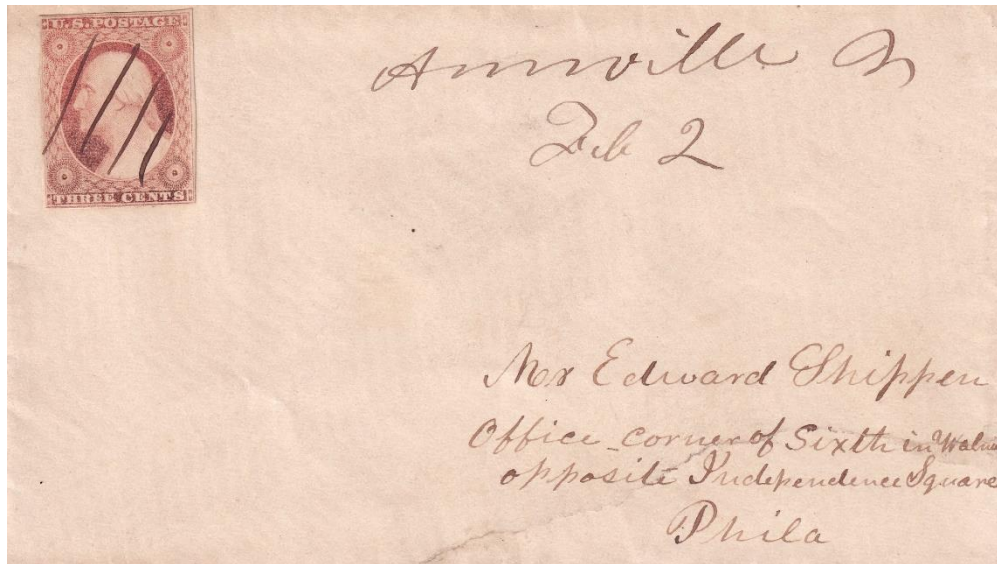 U.S. POSTAGE
THREE CENTS
Annville
Feb 2
Mr Edward Shippen
Office corner of Sixth in
opposite Independence Square
Phila